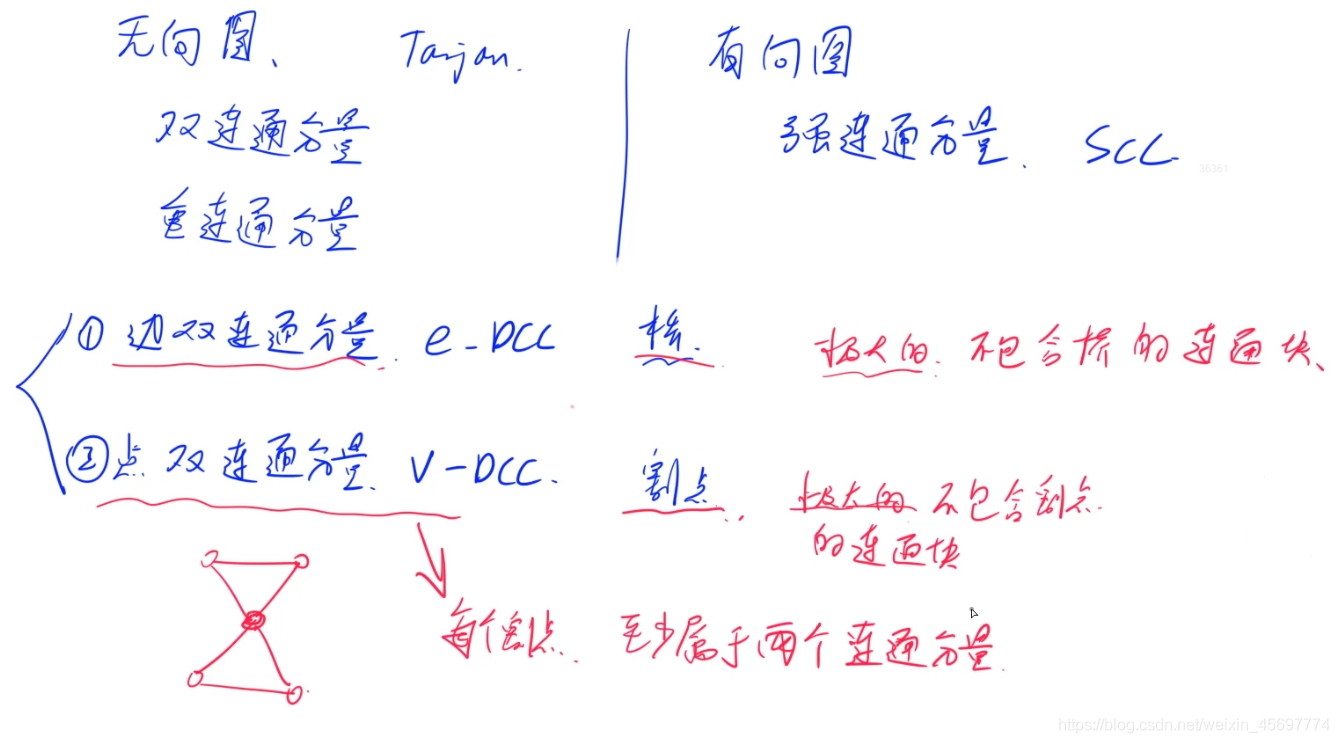 无向图、 Tarjan.
双连通分量
重连通分量
有向图
强连通分量. SCC
36361
① 边双连通分量. e-DCC 桥. 极大的. 不包含桥的连通块、
② 点双连通分量. V-DCC. 割点. 极大的 不包含割点
的连通块
每个割点. 至少属于两个连通分量.
https://blog.csdn.net/weixin_45697774